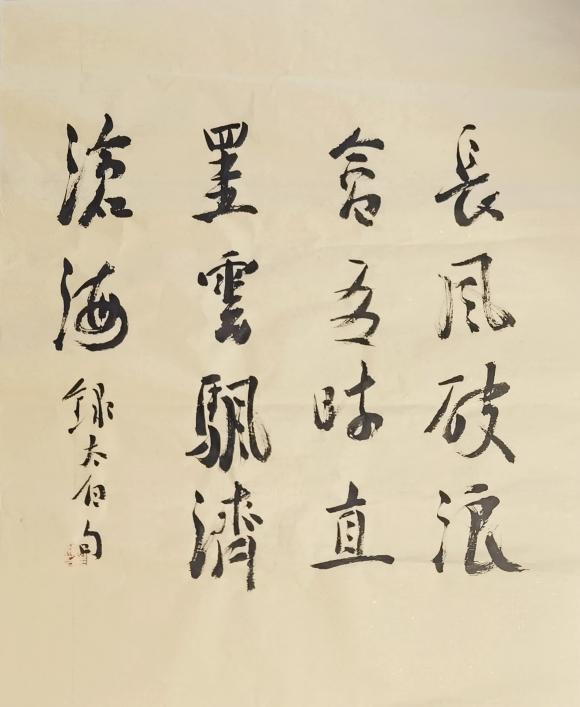 長風破浪
會有時直
罣雲颿濟
滄海 錄太白句